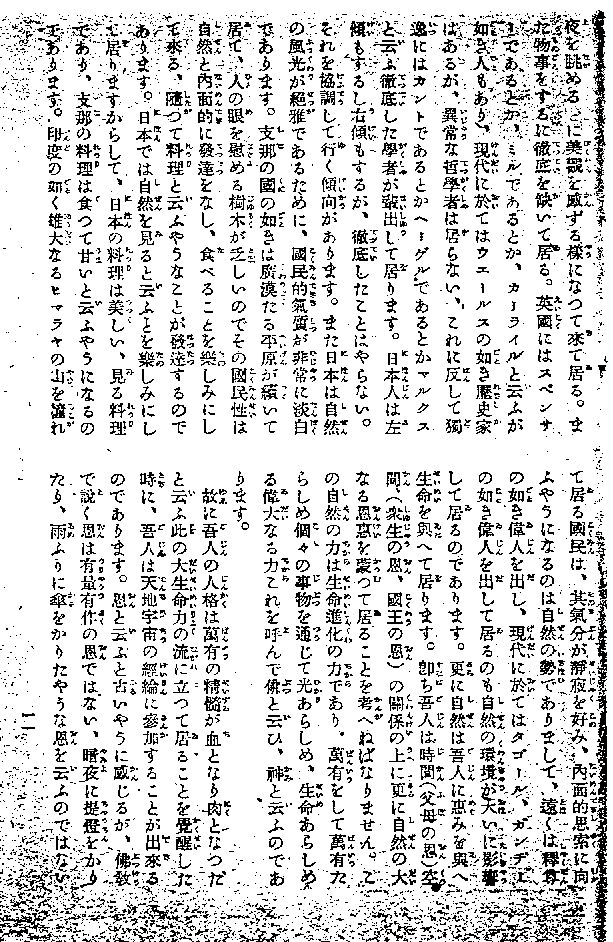 夜を眺める〻に美觀を感ずる樣になつて來て居る。ま
た物事をするに徹底を缺いて居る。英國にはスペンサ
ーであるとか、ミルであるとか、カーライルと云ふが
如き人もあり、現代に於てはウエールスの如き歷史家
はあるが、異常な哲學者は居らない、これに反して獨
逸にはカントであるとかヘーゲルであるとかマルクス
と云ふ徹底した學者が輩出して居ります。日本人は左
傾もするし右傾もするが、徹底したことはやらない。
それを協調して行く傾向があります。また日本は自然
の風光が絕雅であるために、國民的氣質が非常に淡白
であります。支那の國の如きは廣漠たる平原が續いて
居て、人の眼を慰める樹木が乏しいのでその國民性は
自然と內面的に發達をなし、食べることを樂しみにし
て來る、隨つて料理と云ふやうなことが發達するので
あります。日本では自然を見ると云ふことを樂しみにし
て居りますからして、日本の料理は美しい、見る料理
であり、支那の料理は食つて甘いと云ふやうになるの
であります。印度の如く雄大なるヒマラヤの山を憧れ
て居る國民は、其氣分が靜寂を好み、內面的思索に向
ふやうになるのは自然の勢でありまして、遠くは釋尊
の如き偉人を出し、現代に於てはタゴール、ガンヂー
の如き偉人を出して居るのも自然の環境が大いに影響
して居るのであります。更に自然は吾人に惠みを與へ
生命を與へて居ります。卽ち吾人は時間(父母の恩)空
間、(衆生の恩、國王の恩)の關係の上に更に自然の大
なる恩惠を蒙つて居ることを考へねばなりません。こ
の自然の力は生命進化の力であり、萬有をして萬有た
らしめ個々の事物を通じて光あらしめ、生命あらしめ
る偉大なる力これを呼んで佛と云ひ、神と云ふのであ
ります。
故に吾人の人格は萬有の精髓が血となり肉となつた
と云ふ此の大生命力の流に立つて居ることを覺醒した
時に、吾人は天地宇宙の經綸に參加することが出來る
のであります。恩と云ふと古いやうに感じるが、佛敎
で說く恩は有量有作の恩ではない、暗夜に提燈をかり
たり、雨ふりに傘をかりたやうな恩を云ふのではない
一一